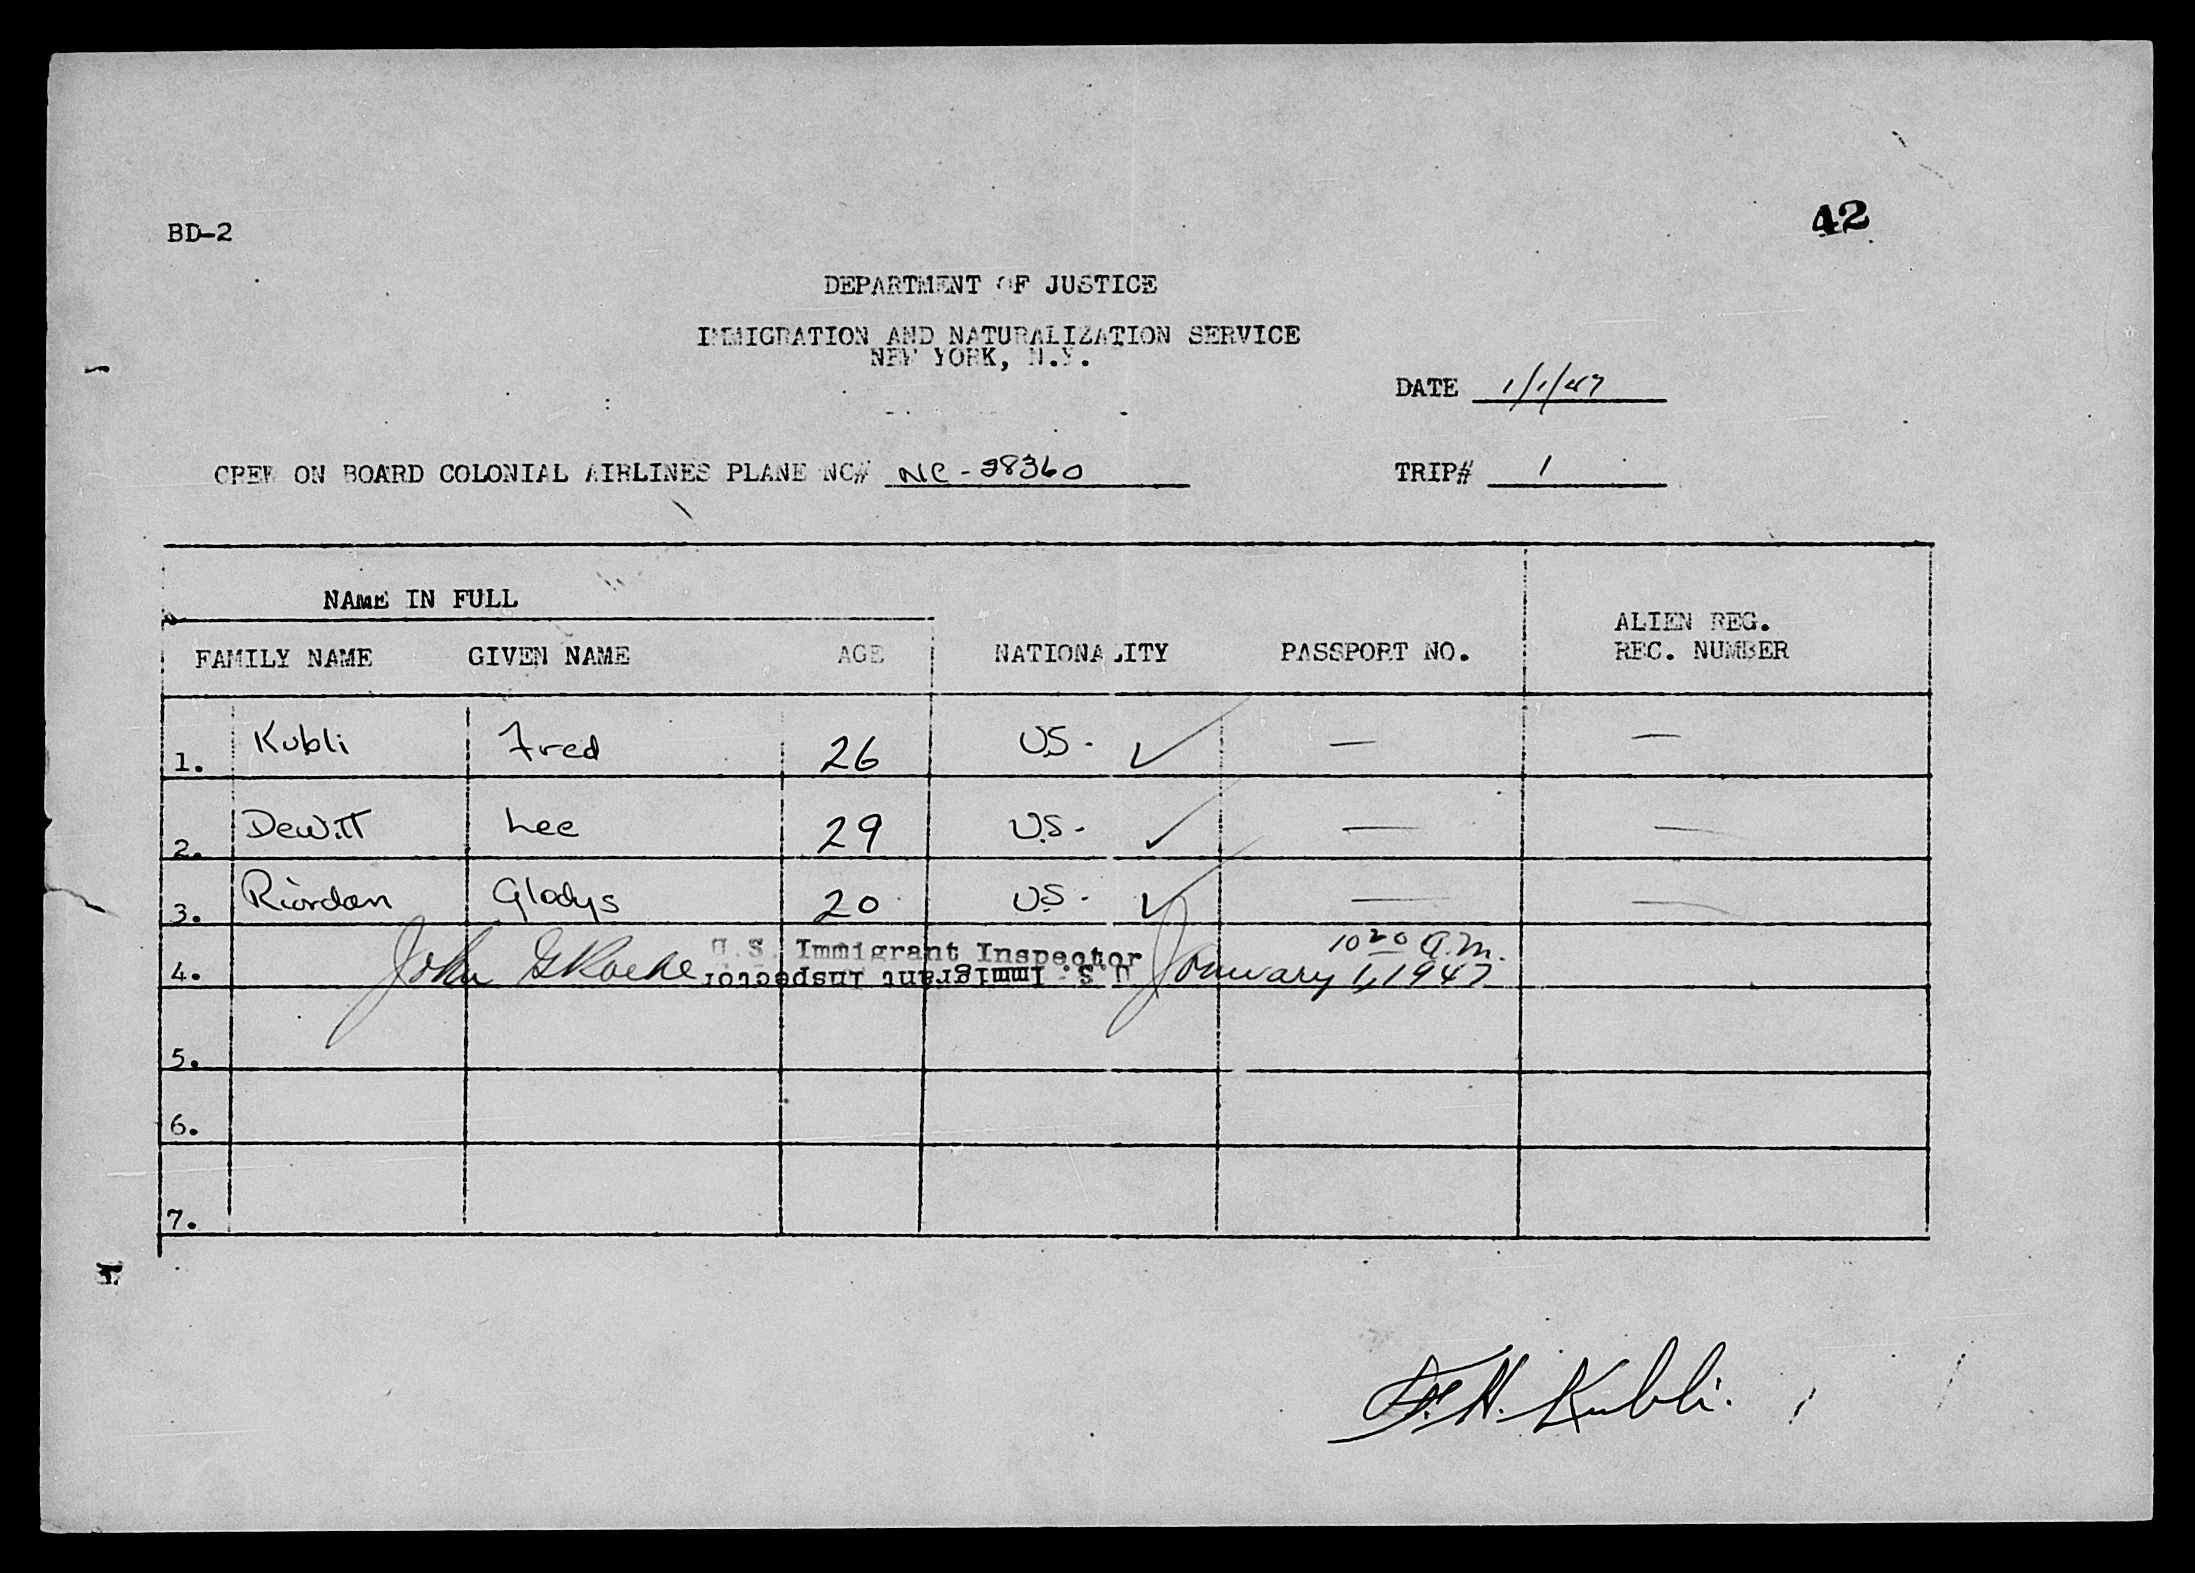 BD-2
42
DEPARTMENT OF JUSTICE
IMMIGRATION AND NATURALIZATION SERVICE
NEW YORK, N.Y.
DATE 1/1/47
CREW ON BOARD COLONIAL AIRLINES PLANE NC# NC-28360 TRIP# 1
NAME IN FULL
FAMILY NAME GIVEN NAME AGE NATIONALITY PASSPORT NO. ALIEN REG. REC. NUMBER
1. Kubli Fred 26 U.S. ✓ — —
2. Dewitt Lee 29 U.S. ✓ — —
3. Riordan Gladys 20 U.S. ✓ — —
4. John U.S. Immigrant Inspector January 1, 1947 10 20 a.m.
U.S. Immigrant Inspector
5.
6.
7.
F.H. Kubli.